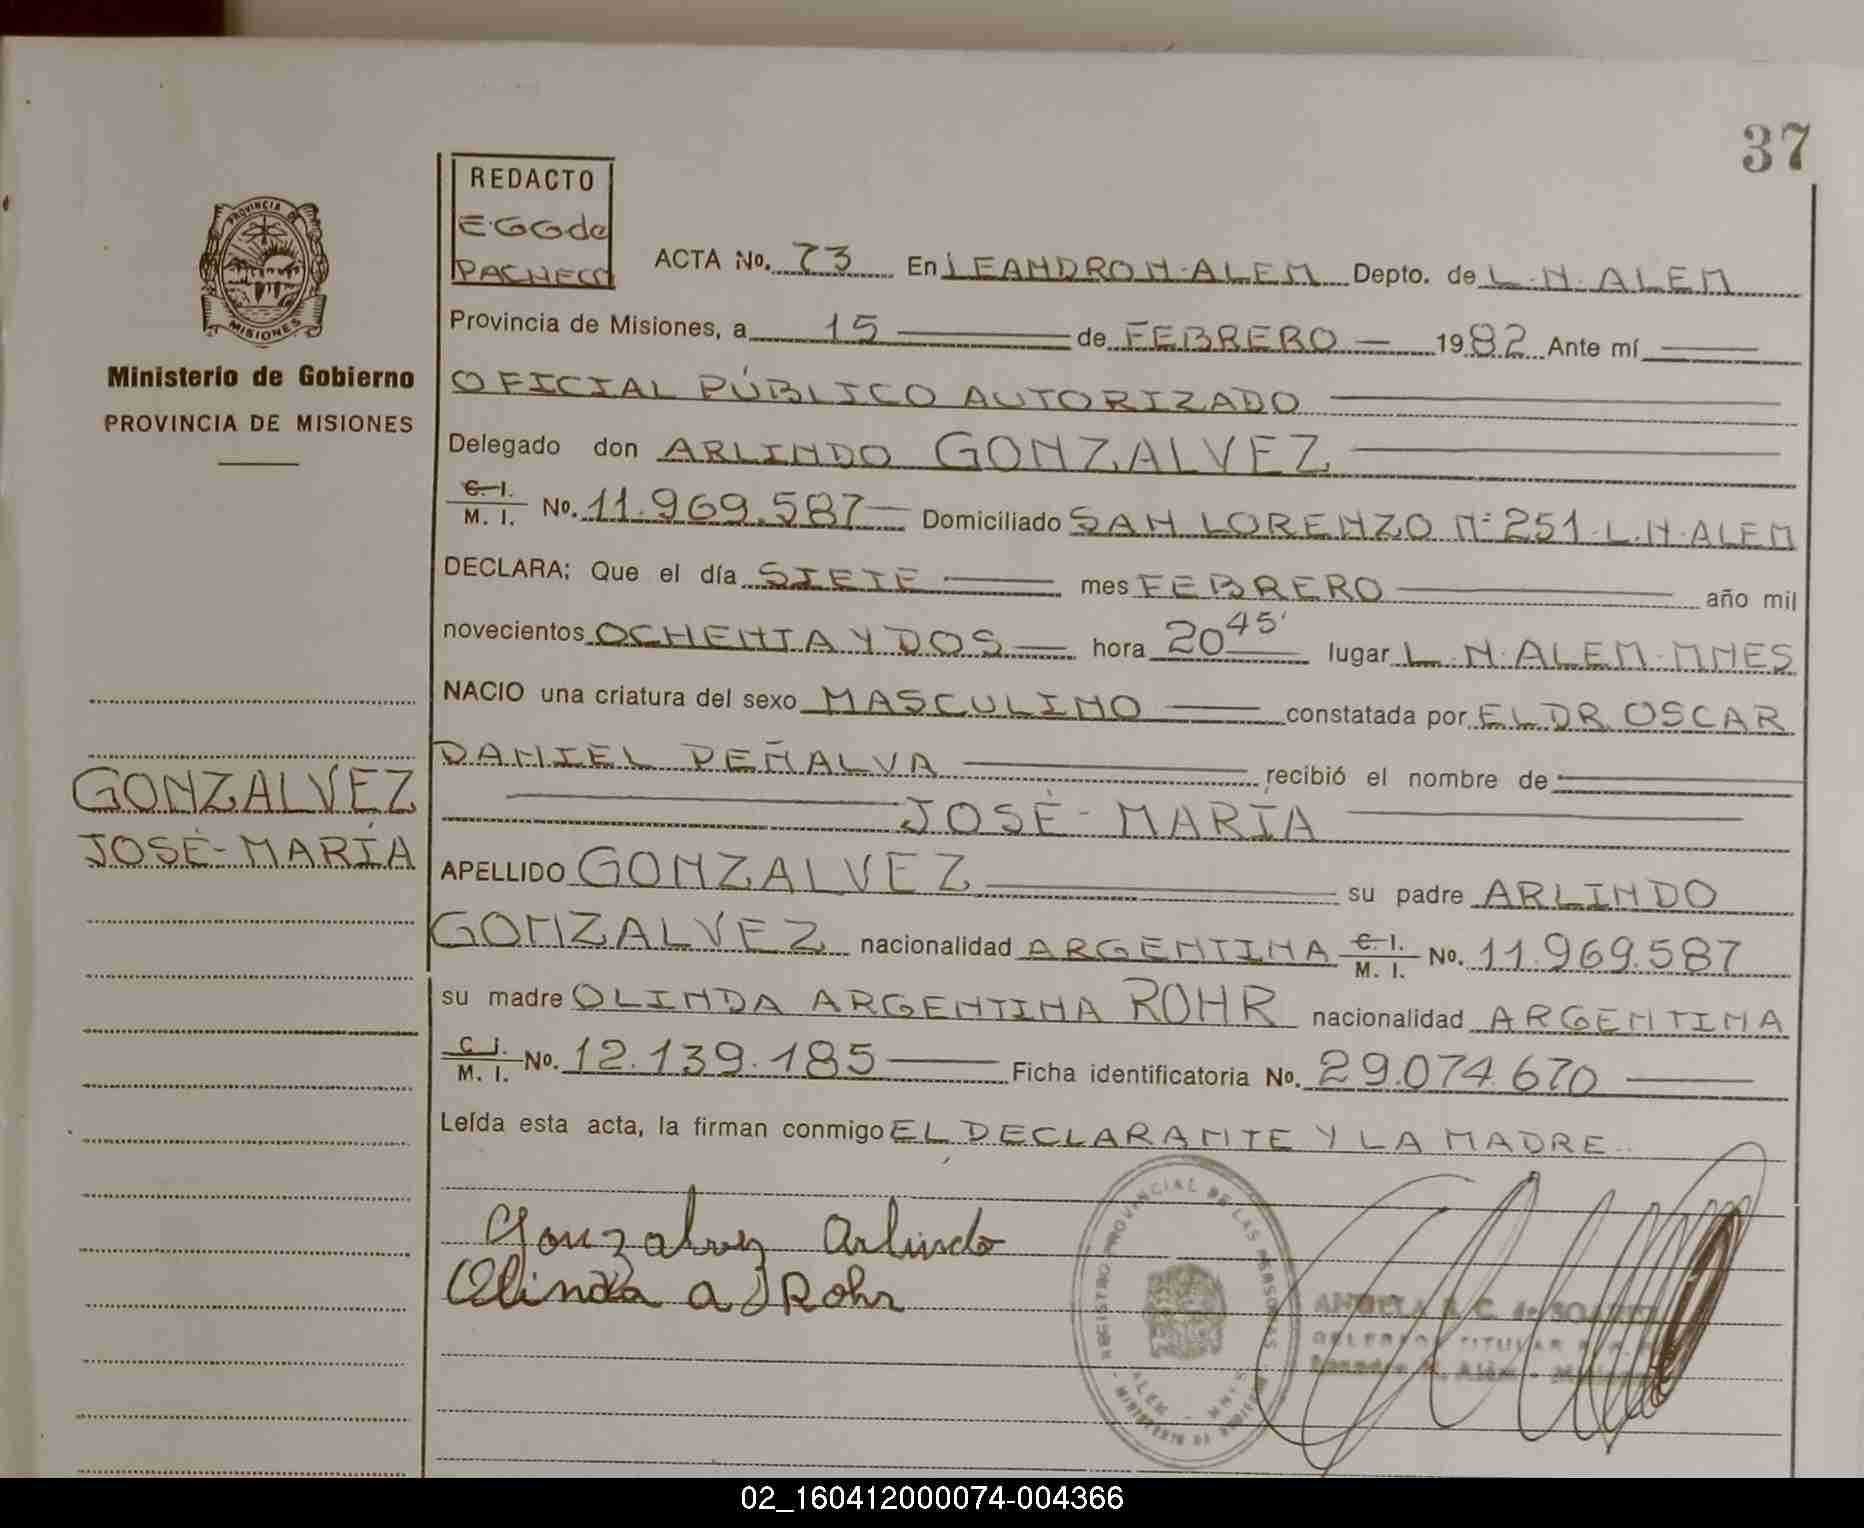 37
REDACTO
E.GG de
PACHECO
PROVINCIA DE
MISIONES
Ministerio de Gobierno
PROVINCIA DE MISIONES
ACTA No. 73 En LEANDRO N. ALEM Depto. de L. N. ALEM
Provincia de Misiones, a 15 de FEBRERO 1982 Ante mí
OFICIAL PÚBLICO AUTORIZADO
Delegado don ARLINDO GONZALVEZ
C. I. / M. I. No. 11.969.587 Domiciliado SAN LORENZO Nº 251 - L. N. ALEM
DECLARA; Que el día SIETE mes FEBRERO año mil
novecientos OCHENTA Y DOS hora 20 45' lugar L. N. ALEM - MNES
NACIO una criatura del sexo MASCULINO constatada por EL DR. OSCAR
DANIEL PEÑALVA recibió el nombre de
JOSÉ - MARÍA
GONZALVEZ
JOSÉ - MARÍA
APELLIDO GONZALVEZ su padre ARLINDO
GONZALVEZ nacionalidad ARGENTINA C. I. / M. I. No. 11.969.587
su madre OLINDA ARGENTINA ROHR nacionalidad ARGENTINA
C. I. / M. I. No. 12.139.185 Ficha identificatoria No. 29.074.670
Leída esta acta, la firman conmigo EL DECLARANTE Y LA MADRE
Gonzalvez Arlindo
Olinda a Rohr
REGISTRO PROVINCIAL DE LAS PERSONAS
TITULAR
02_160412000074-004366